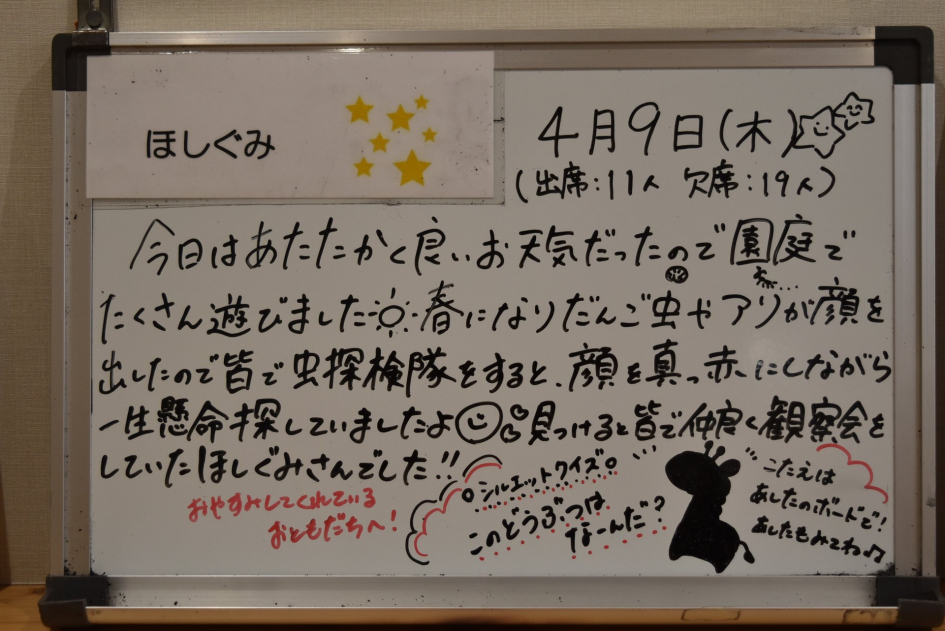 ほしぐみ
4月9日(木)
(出席:11人 欠席:19人)
今日はあたたかく良いお天気だったので園庭で
たくさん遊びました春になりだんご虫やアリが顔を
出したので皆で虫探検隊をすると、顔を真っ赤にしながら
一生懸命探していましたよ見つけると皆で仲良く観察会を
していたほしぐみさんでした!!
おやすみしてくれている
おともだちへ!
シルエットクイズ
このどうぶつは
なーんだ?
こたえは
あしたのボードで!
あしたもみてね♪